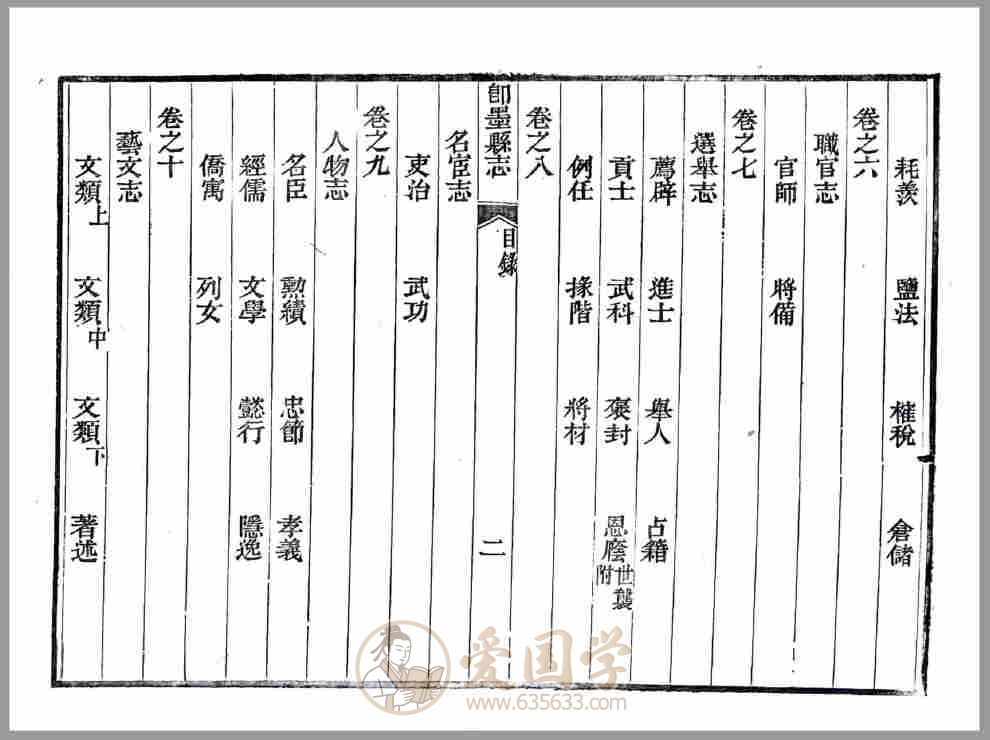 耗羨 鹽法 榷稅 倉儲
卷之六
職官志
官師 將備
卷之七
選舉志
薦辟 進士 舉人 占籍
貢士 武科 褒封 恩廕世襲附
例任 掾階 將材
卷之八
即墨縣志 目錄 二
名宦志
吏治 武功
卷之九
人物志
名臣 勲績 忠節 孝義
經儒 文學 懿行 隱逸
僑寓 列女
卷之十
藝文志
文類上 文類中 文類下 著述
爱国学
www.635633.com